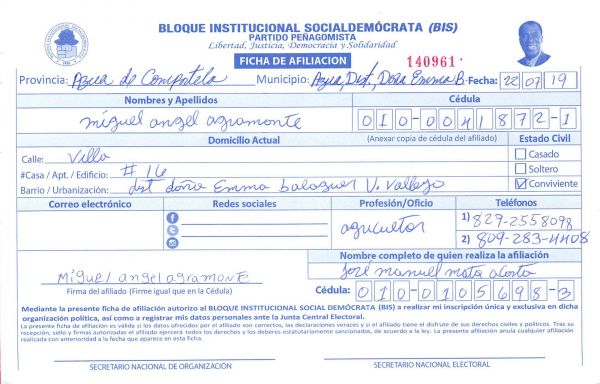 BLOQUE INSTITUCIONAL SOCIALDEMÓCRATA (BIS)
PARTIDO PEÑAGOMISTA
Libertad, Justicia, Democracia y Solidaridad
FICHA DE AFILIACION
140961
Provincia: Azua de Compostela Municipio: Azua, Dist, Doña Emma B. Fecha: 22 07 19
Nombres y Apellidos
Cédula
miguel angel agramonte
010-0041872-1
Domicilio Actual
(Anexar copia de cédula del afiliado)
Estado Civil
Calle: Villa
Casado
#Casa / Apt. / Edificio: #16
Soltero
Barrio / Urbanización: dist doña Emma balaguer V. Vallejo
Conviviente
Correo electrónico
Redes sociales
Profesión/Oficio
Teléfonos
agricultor
1) 829-2558098
2) 809-283-4408
Nombre completo de quien realiza la afiliación
José manuel mota acosta
Miguel angel agramonte
Firma del afiliado (Firme igual que en la Cédula)
Cédula: 010-0105698-3
Mediante la presente ficha de afiliación autorizo al BLOQUE INSTITUCIONAL SOCIAL DEMÓCRATA (BIS) a realizar mi inscripción única y exclusiva en dicha
organización política, así como a registrar mis datos personales ante la Junta Central Electoral.
La presente ficha de afiliación es válida si: los datos ofrecidos por el afiliado son correctos, las declaraciones veraces y si el afiliado tiene el disfrute de sus derechos civiles y políticos. Tras su
recepción, sello y firmas autorizadas el afiliado ejercerá todos los derechos y los deberes estatutariamente sancionados, de acuerdo a la ley. La presente afiliación anula cualquier afiliación
realizada con anterioridad a la fecha que aparece en esta ficha.
SECRETARIO NACIONAL DE ORGANIZACIÓN
SECRETARIO NACIONAL ELECTORAL